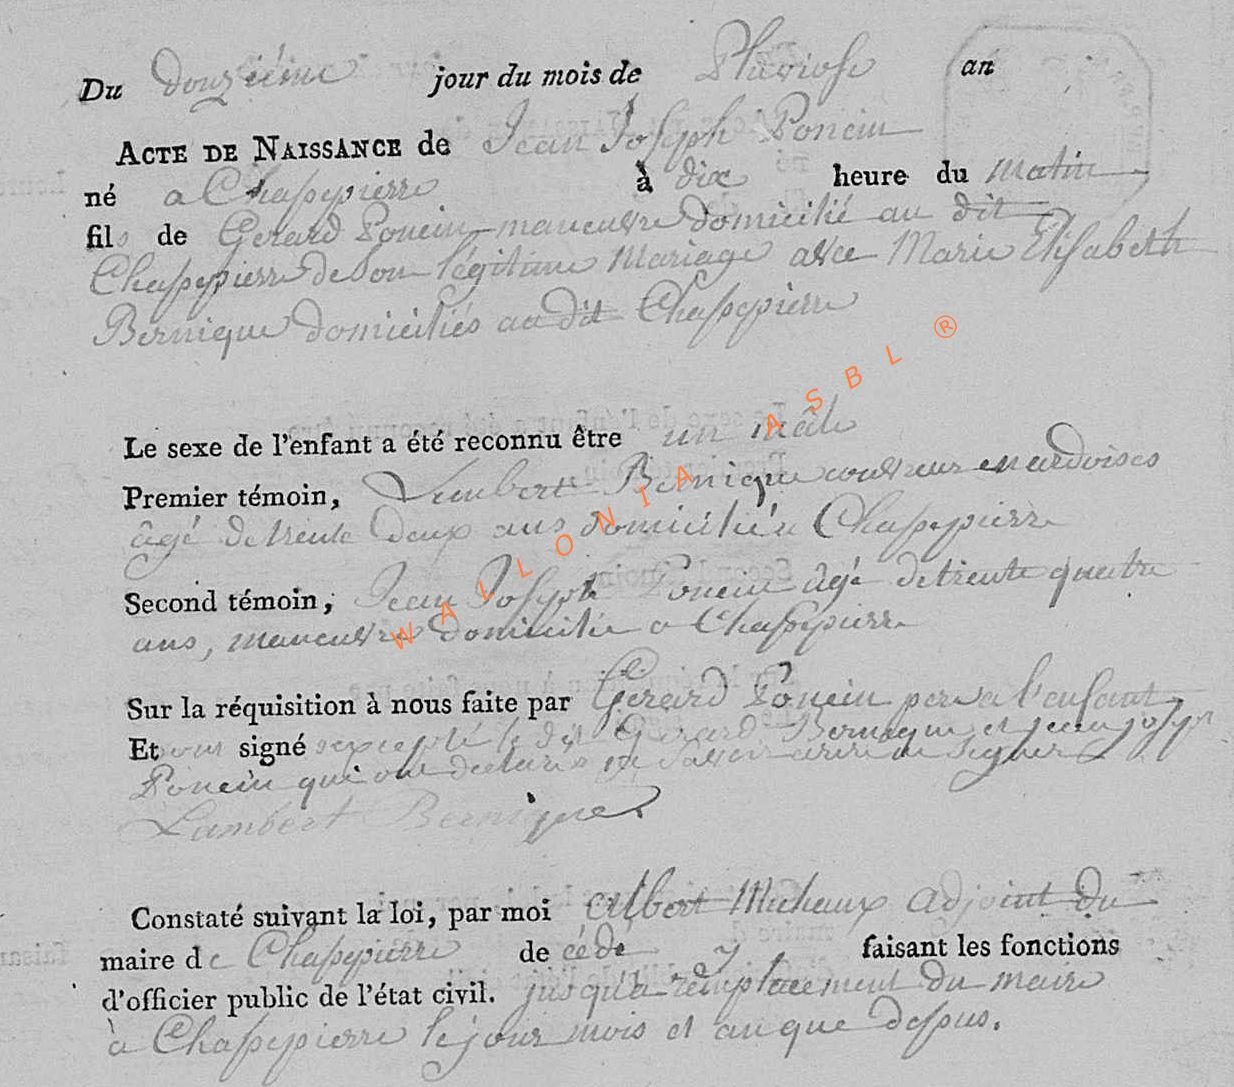 Du douziéme jour du mois de Pluviose an
ACTE DE NAISSANCE de Jean Joseph Poncin
né a Chassepierre à dix heure du matin
fils de Gerard Poncin manœuvre domicilié au dit
Chassepierre de son légitime mariage avec Marie Elisabeth
Bernique domiciliés au dit Chassepierre
Le sexe de l'enfant a été reconnu être un mâle
Premier témoin, Lambert Bernique couvreur en ardoises
âgé de trente deux ans domicilié a Chassepierre
Second témoin, Jean Joseph Poncin âgé de trente quatre
ans, manœuvre domicilié a Chassepierre
Sur la réquisition à nous faite par Gerard Poncin pere a l'enfant
Et ont signé excepté le dit Gerard Bernique et jean joseph
Poncin qui ont declaré ne savoir ecrire ni signer
Lambert Bernique
Constaté suivant la loi, par moi Albert Michaux adjoint du
maire de Chassepierre de cédé faisant les fonctions
d'officier public de l'état civil. jusqu'a remplacement du maire
à Chassepierre le jour mois et an que dessus.
WALLONIA ASBL ®